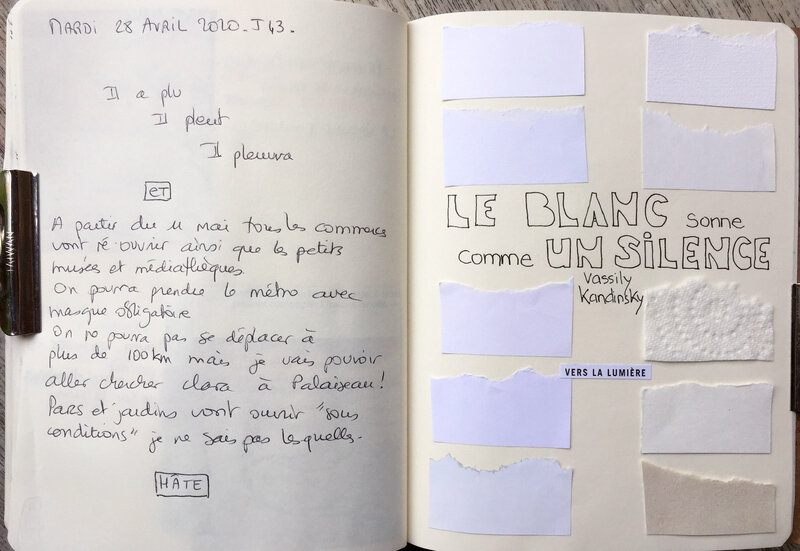 MARDI 28 AVRIL 2020_J43_
Il a plu
Il pleut
Il pleuvra
ET
A partir du 11 mai tous les commerces
vont ré ouvrir ainsi que les petits
musées et médiathèques
On pourra prendre le métro avec
masque obligatoire
On ne pourra pas se déplacer à
plus de 100km mais je vais pouvoir
aller chercher Clara à Palaiseau!
Parcs et jardins vont ouvrir "sous
conditions" je ne sais pas lesquelles-
HÂTE
TAIWAN
LE BLANC sonne
comme UN SiLENCE
Vassily
Kandinsky
VERS LA LUMIÈRE